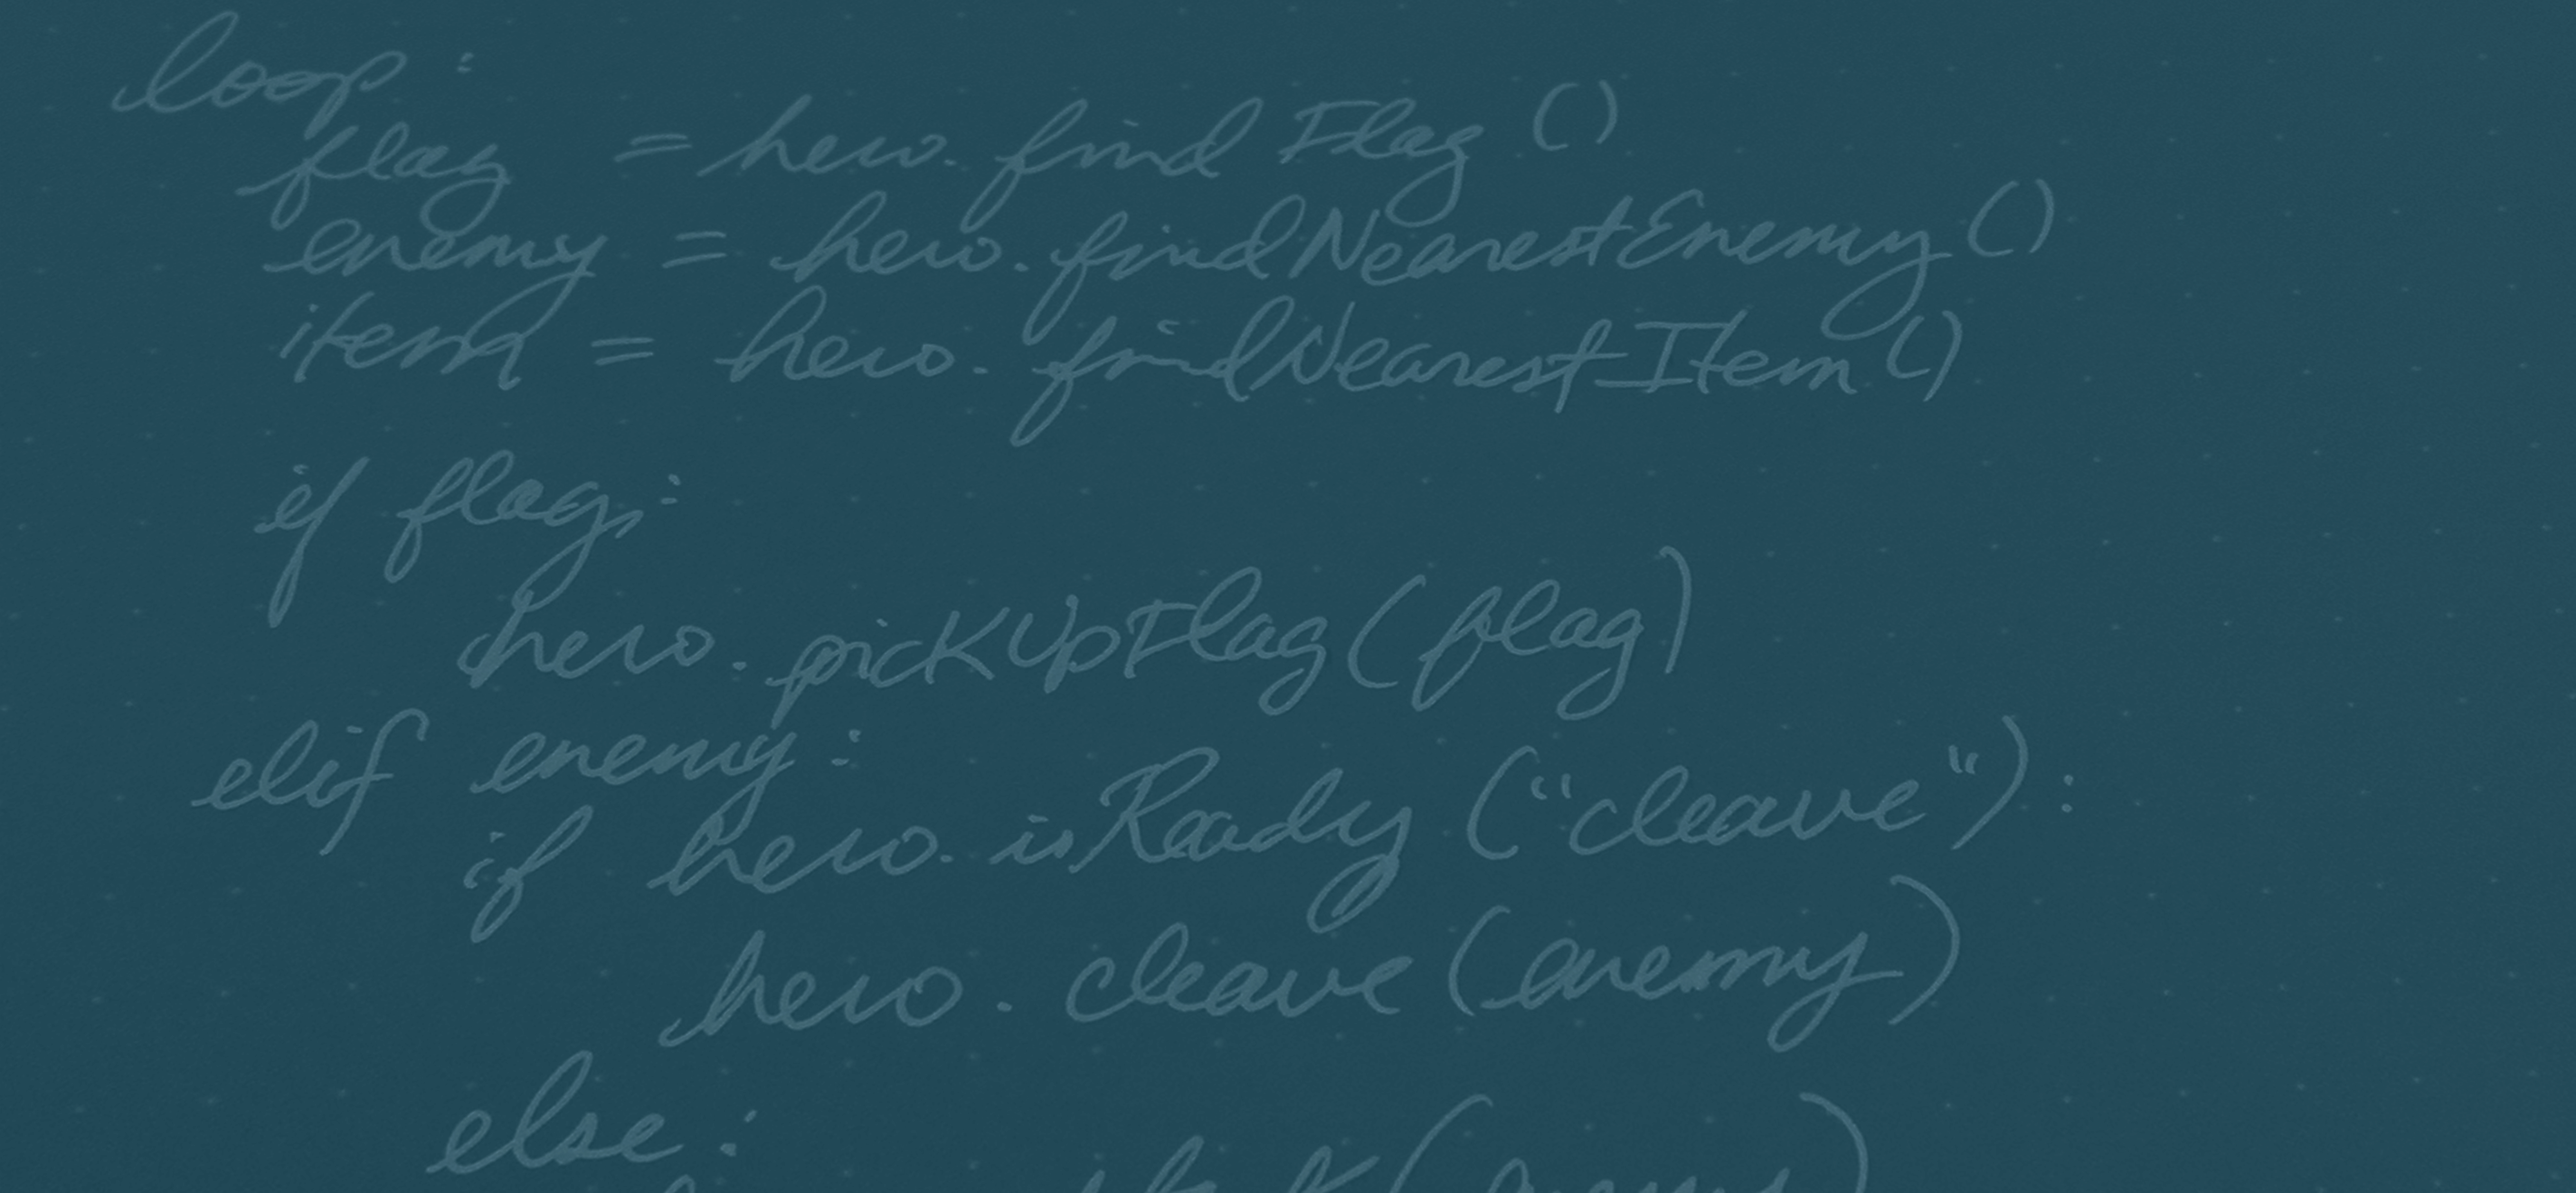 loop:
flag = hero.findFlag()
enemy = hero.findNearestEnemy()
item = hero.findNearestItem()
if flag:
hero.pickUpFlag(flag)
elif enemy:
if hero.isReady("cleave"):
hero.cleave(enemy)
else: